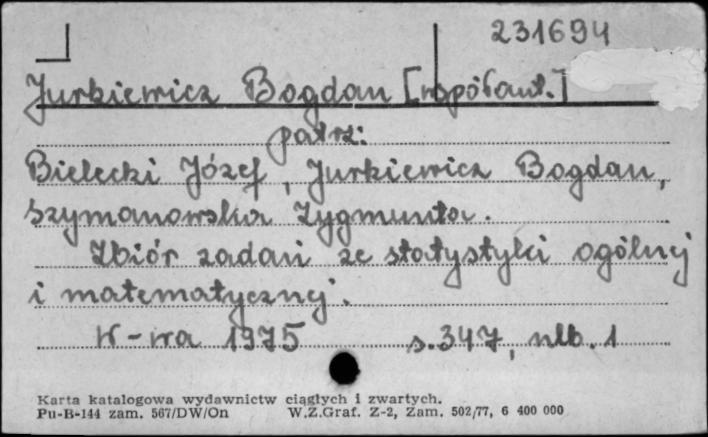 231694
Jurkiewicz Bogdan [współaut.]
patrz:
Bielecki Józef, Jurkiewicz Bogdan,
Szymanowska Zygmunta.
Zbiór zadań ze statystyki ogólnej
i matematycznej.
W-wa 1975 s. 347, nlb. 1
Karta katalogowa wydawnictw ciągłych i zwartych.
Pu-B-144 zam. 567/DW/On W.Z.Graf. Z-2, Zam. 502/77, 6 400 000